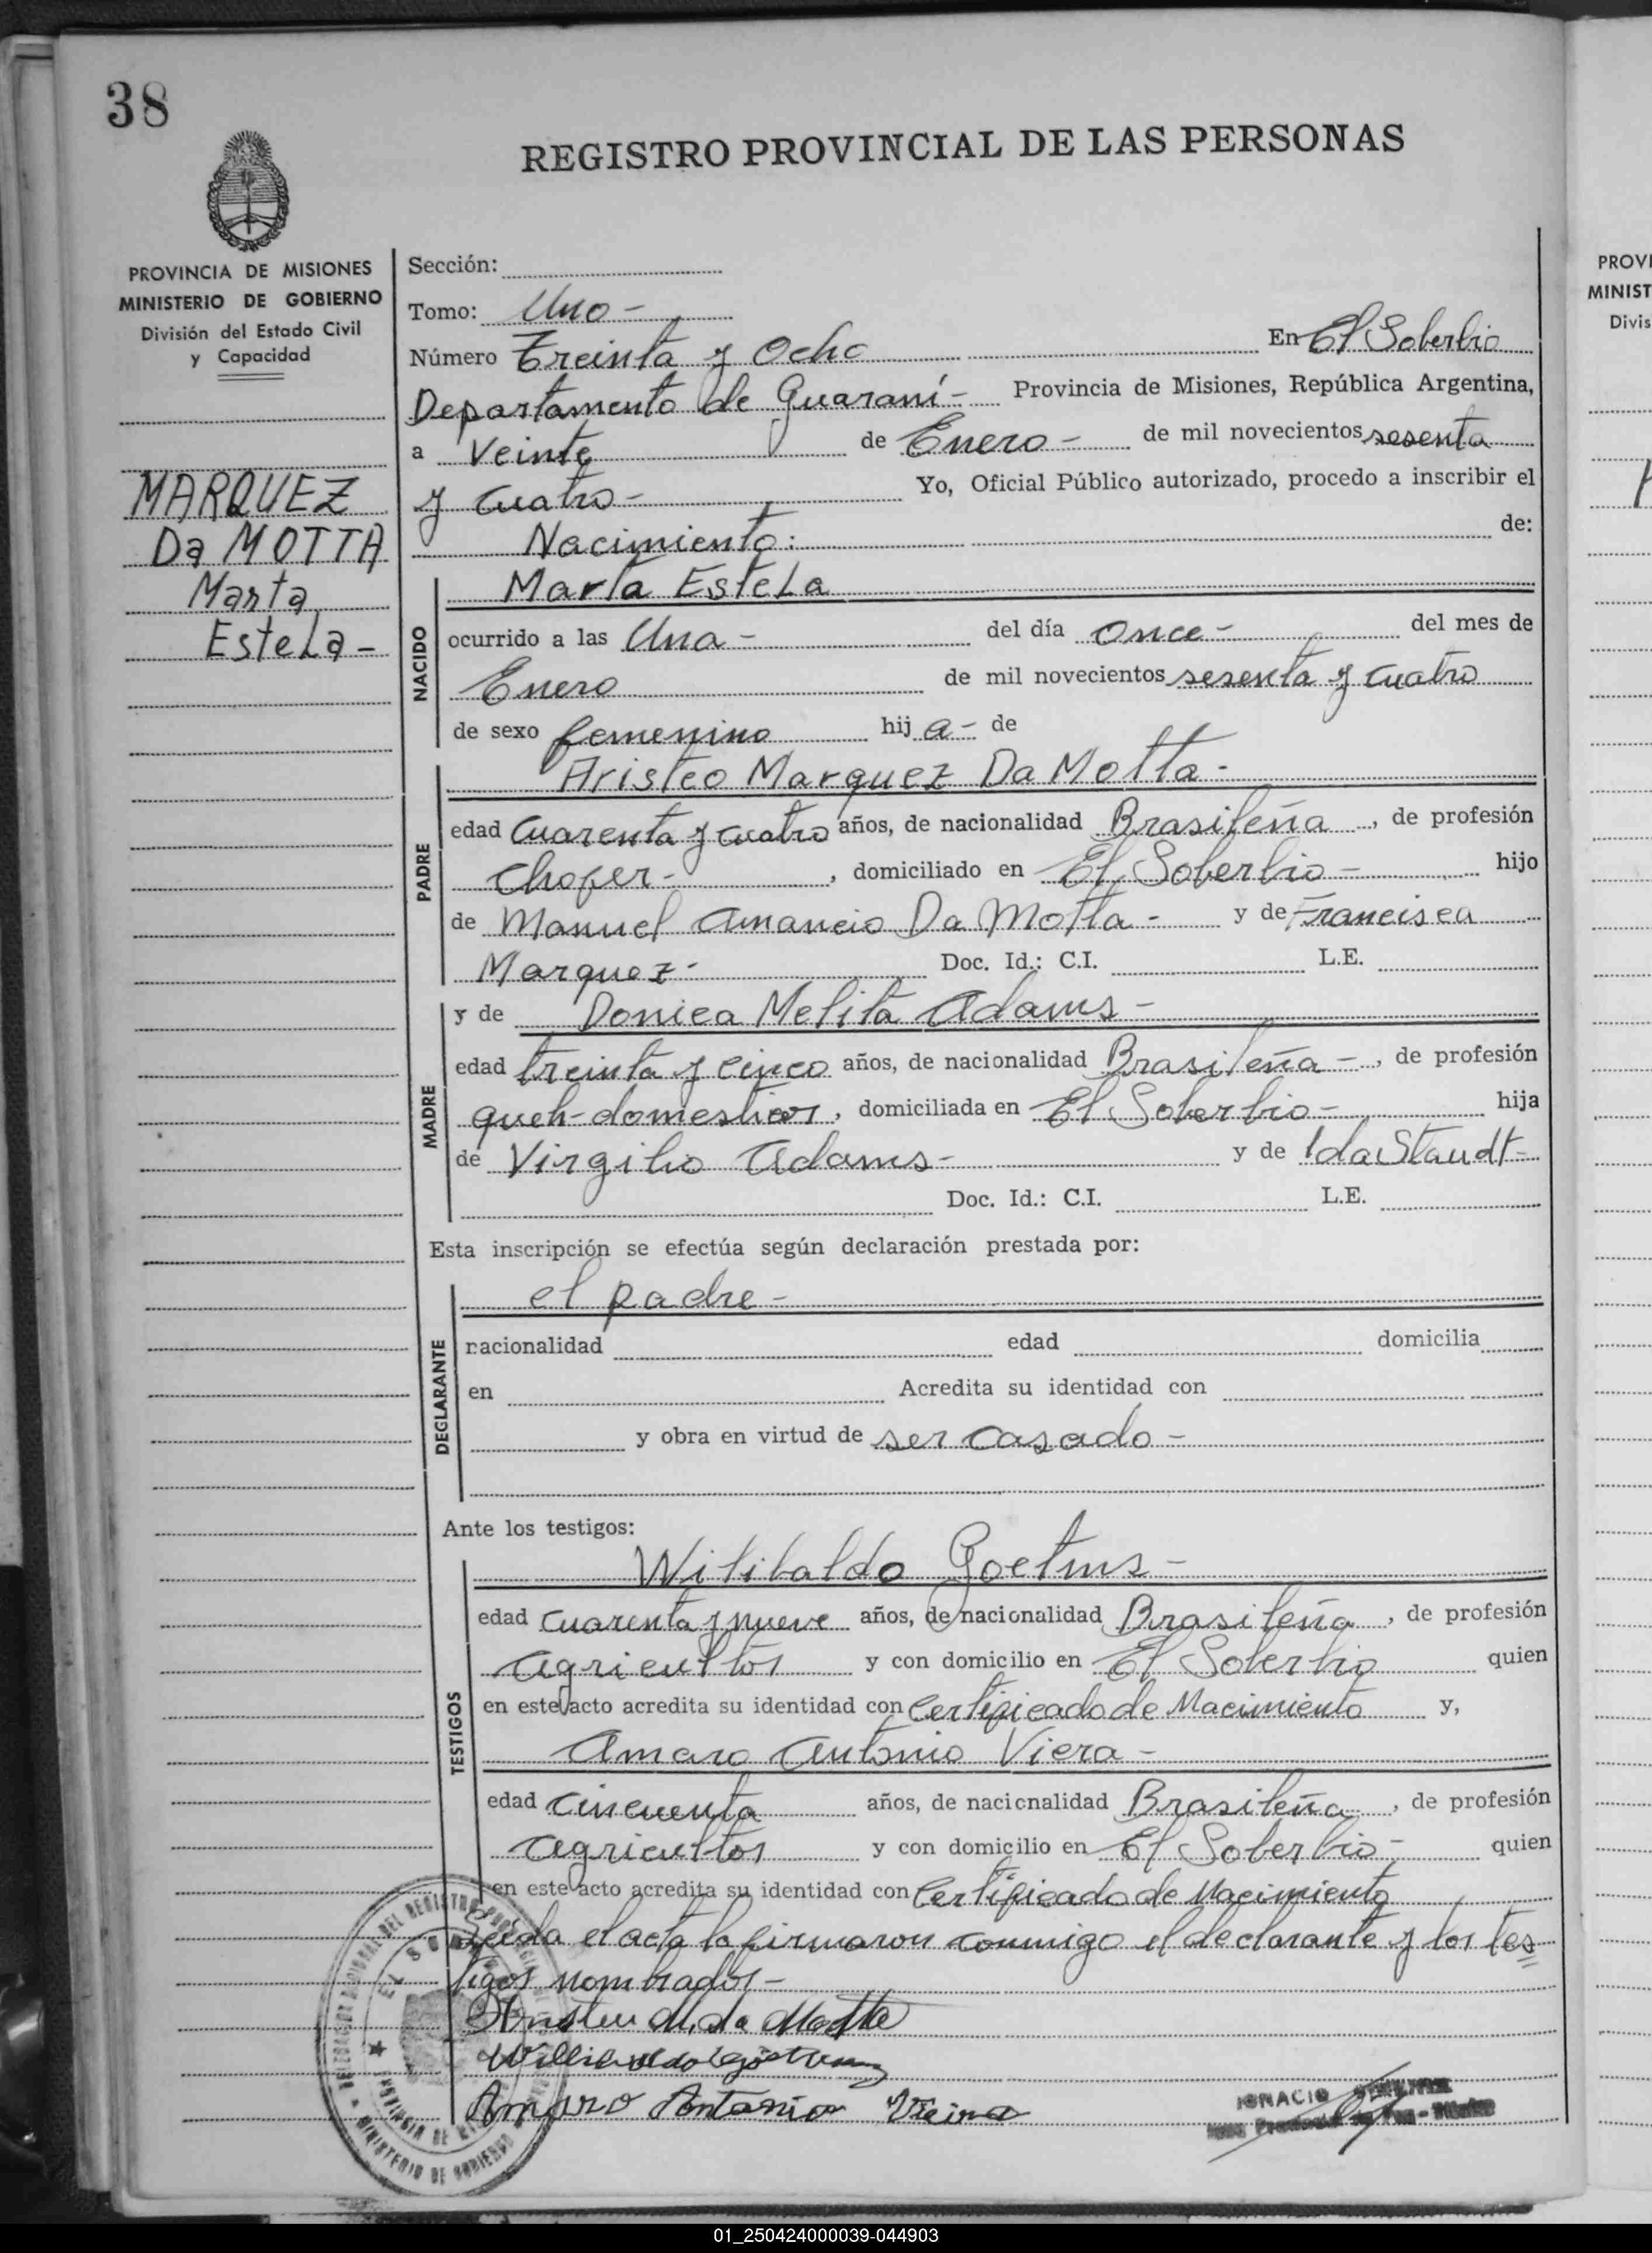 38
REGISTRO PROVINCIAL DE LAS PERSONAS
PROVINCIA DE MISIONES
MINISTERIO DE GOBIERNO
División del Estado Civil
y Capacidad
MARQUEZ
Da MOTTA
Marta
EsteLa-
Sección:
Tomo: Uno-
Número Treinta y Ocho En El Soberbio
Departamento de Guaraní- Provincia de Misiones, República Argentina,
a Veinte de Enero- de mil novecientos sesenta
y cuatro- Yo, Oficial Público autorizado, procedo a inscribir el
Nacimiento: de:
NACIDO
Marta EsteLa
ocurrido a las Una- del día Once- del mes de
Enero de mil novecientos sesenta y cuatro
de sexo femenino hij a- de
PADRE
Aristeo Marquez Da Motta-
edad Cuarenta y cuatro años, de nacionalidad Brasileña, de profesión
Chofer-, domiciliado en El Soberbio- hijo
de Manuel Amancio Da Motta- y de Francisca
Marquez- Doc. Id.: C.I. L.E.
MADRE
y de Donica Melita Adams-
edad treinta y cinco años, de nacionalidad Brasileña-, de profesión
queh-domesticos, domiciliada en El Soberbio- hija
de Virgilio Adams- y de Ida Staudt-
Doc. Id.: C.I. L.E.
Esta inscripción se efectúa según declaración prestada por:
DECLARANTE
el padre-
nacionalidad edad domicilia
en Acredita su identidad con
y obra en virtud de ser casado-
Ante los testigos:
TESTIGOS
Wilibaldo
edad Cuarenta y nueve años, de nacionalidad Brasileña, de profesión
agricultor y con domicilio en El Soberbio quien
en este acto acredita su identidad con Certificado de Nacimiento y,
Amaro Antonio Viera-
edad Cincuenta años, de nacionalidad Brasileña, de profesión
agricultor y con domicilio en El Soberbio- quien
en este acto acredita su identidad con Certificado de Nacimiento
Leida el acta la firmaron conmigo el declarante y los tes
tigos nombrados-
M. da Motta
Amaro Antonio Vieira
IGNACIO
MINISTERIO DE GOBIERNO
PROVI
MINIST
Divis
01_250424000039-044903